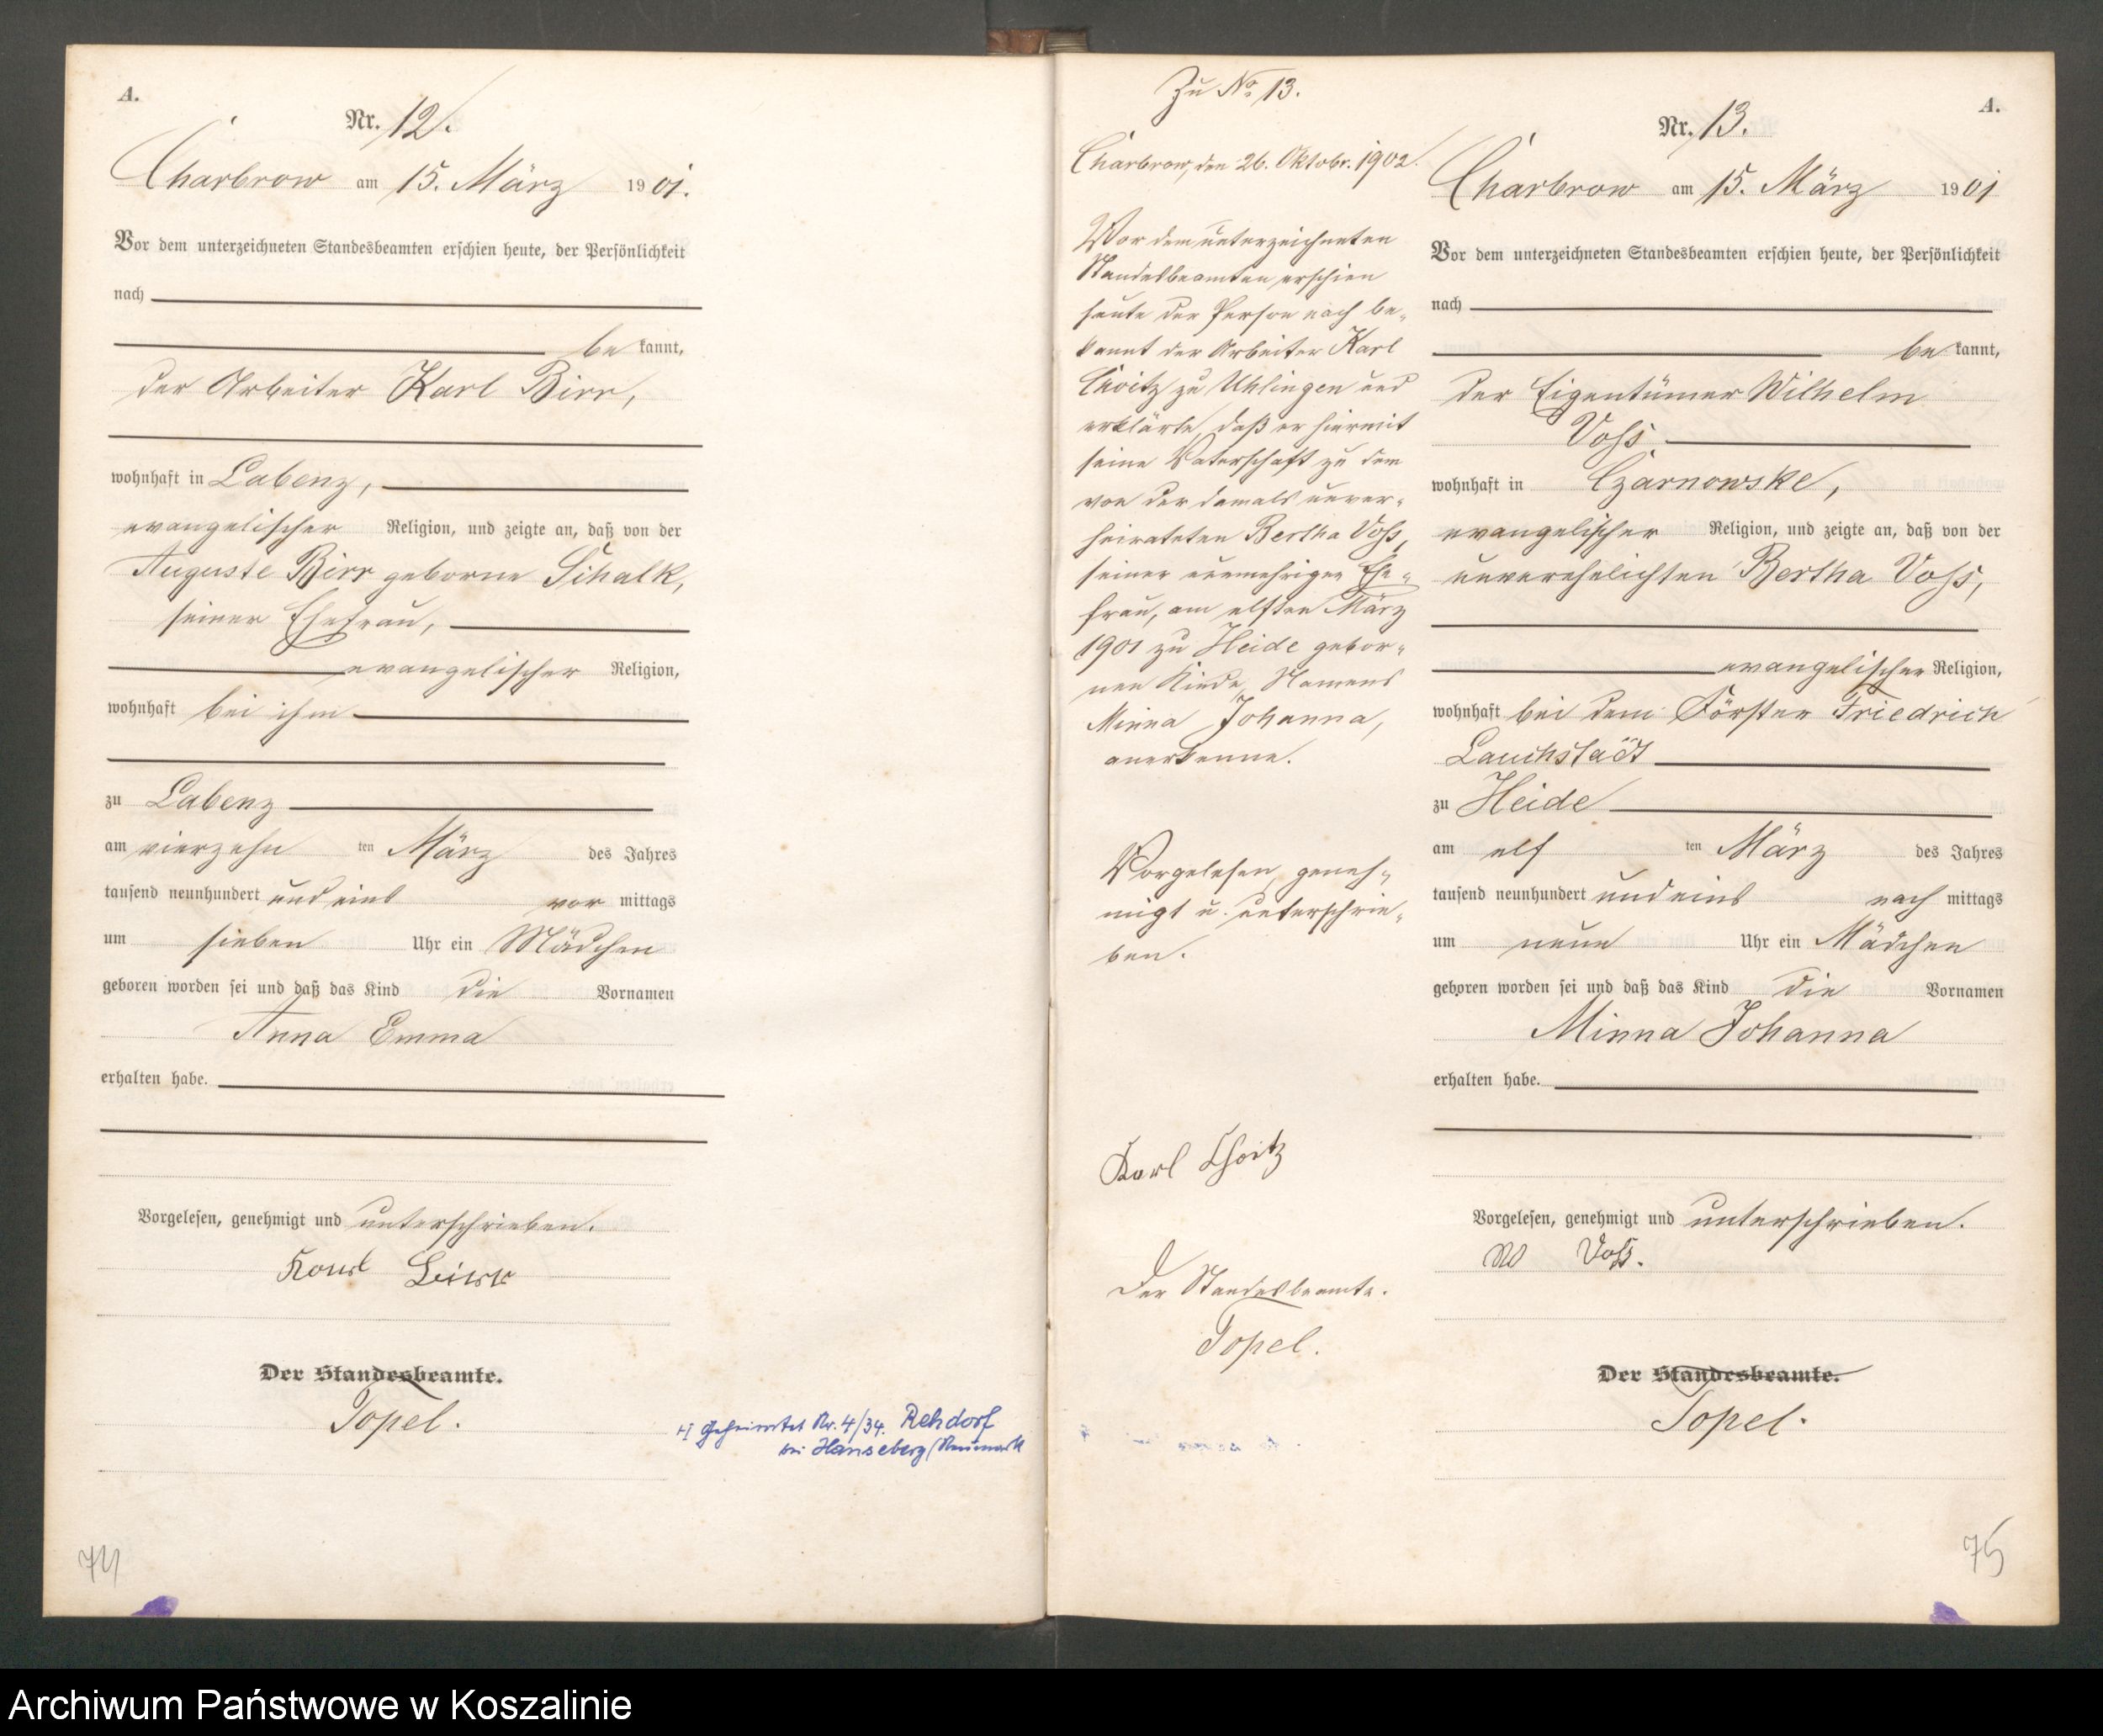 A.
Nr. 12.
Charbrow am 15. März 1901.
Vor dem unterzeichneten Standesbeamten erschien heute, der Persönlichkeit
nach
be kannt,
der Arbeiter Karl Birr,
wohnhaft in Labenz,
evangelischer Religion, und zeigte an, daß von der
Auguste Birr geborne Schalk,
seiner Ehefrau,
evangelischer Religion,
wohnhaft bei ihm
zu Labenz
am vierzehn ten März des Jahres
tausend neunhundert und eins vor mittags
um sieben Uhr ein Mädchen
geboren worden sei und daß das Kind die Vornamen
Anna Emma
erhalten habe.
Vorgelesen, genehmigt und unterschrieben.
Karl
Der Standesbeamte.
Topel.
Geheiratet Nr. 4/34. Rehdorf
bei Hanseberg/Neumark
74
Zu No 13.
Charbrow, den 26. Oktobr. 1902.
Vor dem unterzeichneten
Standesbeamten erschien
heute der Person nach be-
kannt der Arbeiter Karl
zu Uhlingen und
erklärte, daß er hiermit
seine Vaterschaft zu dem
von der damals unver-
heirateten Bertha Voß,
seiner nunmehrigen Ehe-
frau, am elften März
1901 zu Heide gebor-
nen Kinde, Namens
Minna Johanna,
anerkenne.
Vorgelesen, geneh-
migt u. unterschrie-
ben.
Karl
Der Standesbeamte.
Topel.
A.
Nr. 13.
Charbrow am 15. März 1901
Vor dem unterzeichneten Standesbeamten erschien heute, der Persönlichkeit
nach
be kannt,
der Eigentümer Wilhelm
Voß
wohnhaft in Czarnowske,
evangelischer Religion, und zeigte an, daß von der
unverehelichten Bertha Voß,
evangelischer Religion,
wohnhaft bei dem Förster Friedrich
Lauchstädt
zu Heide
am elf ten März des Jahres
tausend neunhundert und eins nach mittags
um neun Uhr ein Mädchen
geboren worden sei und daß das Kind die Vornamen
Minna Johanna
erhalten habe.
Vorgelesen, genehmigt und unterschrieben.
W Voß.
Der Standesbeamte.
Topel.
75
Archiwum Państwowe w Koszalinie